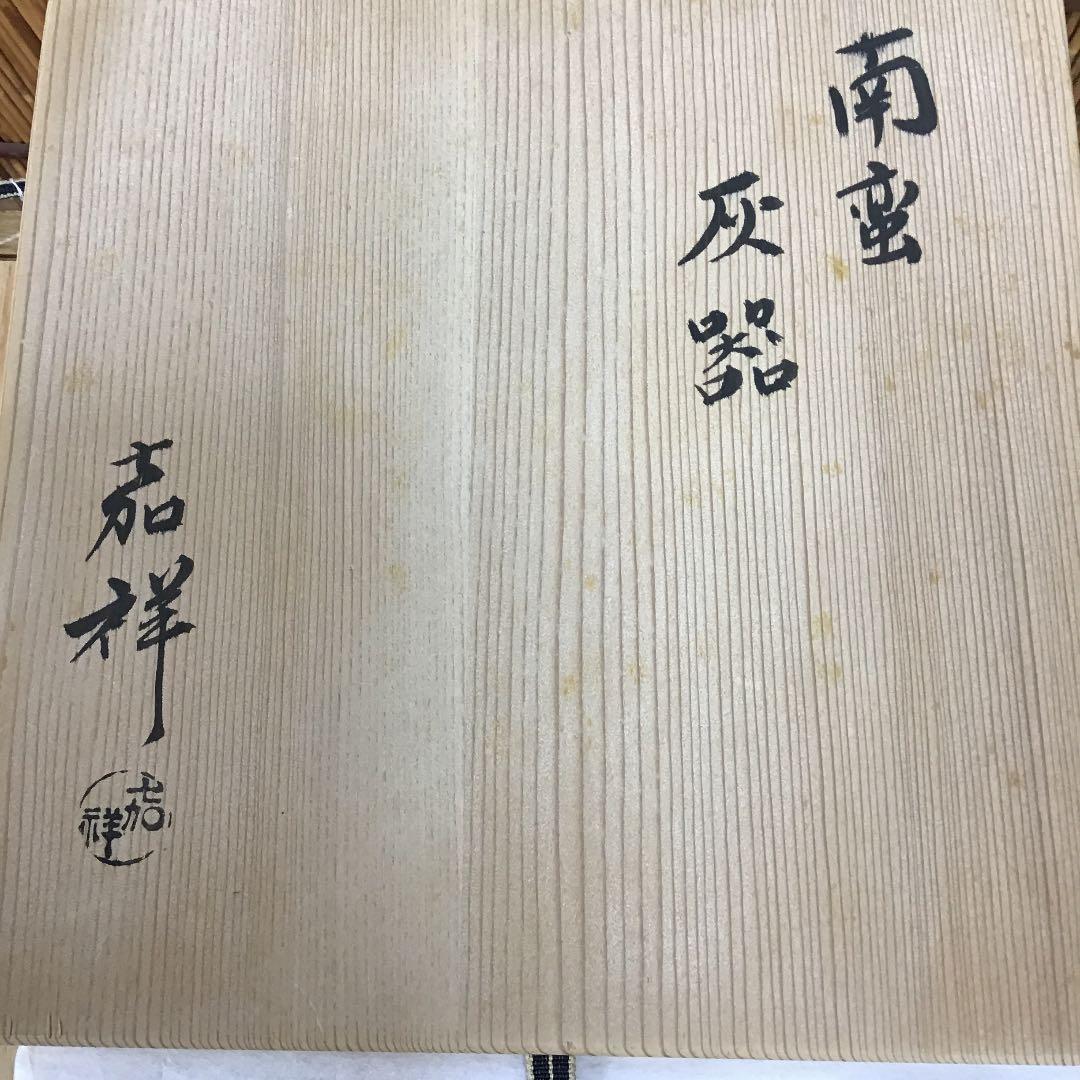 南蛮
灰器
嘉祥
嘉祥